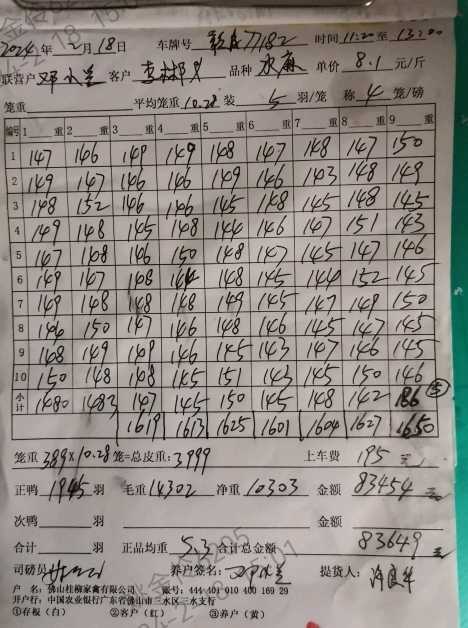 2024年 2月18日 车牌号 77182 时间 11:20至 13:00
联营户 邓小兰 客户 品种 水麻 单价 8.1 元/斤
笼重 平均笼重 10.28 装 5 羽/笼 称 4 笼/磅
编号 1 重 2 重 3 重 4 重 5 重 6 重 7 重 8 重 9 重
1 147 146 149 149 148 147 148 147 150
2 149 147 146 146 149 146 143 148 149
3 148 152 146 146 145 148 145 148 145
4 149 148 145 148 144 146 147 151 143
5 147 148 146 150 148 147 145 147 146
6 149 147 148 144 148 145 144 152 145
7 149 148 148 148 149 145 147 149 150
8 146 150 147 146 148 146 145 147 145
9 148 149 149 146 145 143 147 146 145
10 150 148 148 145 151 143 145 150 146
小计 1480 1483 147 145 150 145 148 142 186 ⑤
1619 1613 1625 1601 1604 1627 1650
笼重 389×10.28 笼=总皮重: 3999 上车费 195 元
正鸭 1945 羽 毛重 14302 净重 10303 金额 83454 元
次鸭 羽 金额
合计 羽 正品均重 5.3 合计总金额 83649 元
司磅员 养户签名: 邓小兰 提货人:
户 名: 佛山桂柳家禽有限公司 账号: 444 401 010 400 169 29
开户行: 中国农业银行广东省佛山市三水区三水支行
①存根（白） ②客户（红） ③养户（黄）